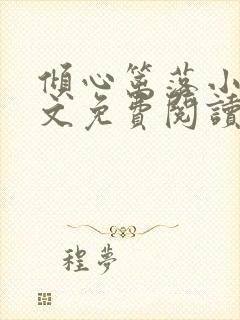 傾心篱落小
文免費閱讀
程夢